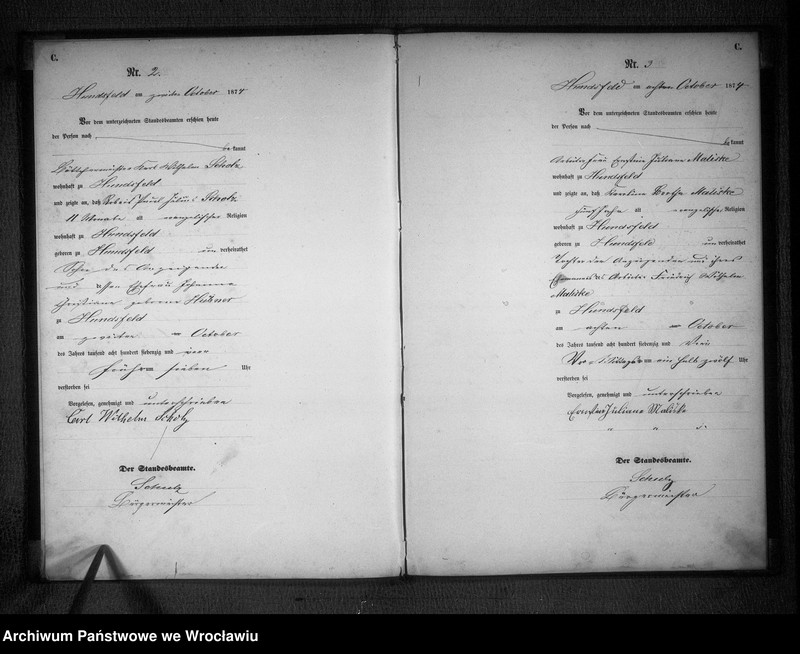 C.
Nr. 2.
Hundsfeld am zweiten October 1874
Vor dem unterzeichneten Standesbeamten erschien heute
der Person nach
be kannt
Karl Wilhelm Scholz
wohnhaft zu Hundsfeld
und zeigte an, daß Paul Julius Scholz
11 Monate alt evangelischer Religion
wohnhaft zu Hundsfeld
geboren zu Hundsfeld unverheirathet
Sohn des Anzeigenden
und dessen Ehefrau Johanna
Christiane geborene Hübner
zu Hundsfeld
am zweiten October
des Jahres tausend acht hundert siebenzig und vier
früh um sieben Uhr
verstorben sei
Vorgelesen, genehmigt und unterschrieben
Carl Wilhelm Scholz
Der Standesbeamte.
Scholz
Bürgermeister
C.
Nr. 3
Hundsfeld am achten October 1874
Vor dem unterzeichneten Standesbeamten erschien heute
der Person nach
be kannt
Juliane Maliske
wohnhaft zu Hundsfeld
und zeigte an, daß Karoline Maliske
fünf Jahr alt evangelischer Religion
wohnhaft zu Hundsfeld
geboren zu Hundsfeld unverheirathet
Tochter der Anzeigenden und ihres
Ehemannes des Arbeiter Friedrich Wilhelm
Maliske
zu Hundsfeld
am achten October
des Jahres tausend acht hundert siebenzig und vier
Vormittags um ein halb zwölf Uhr
verstorben sei
Vorgelesen, genehmigt und unterschrieben
Juliane Maliske
Der Standesbeamte.
Scholz
Bürgermeister
Archiwum Państwowe we Wrocławiu